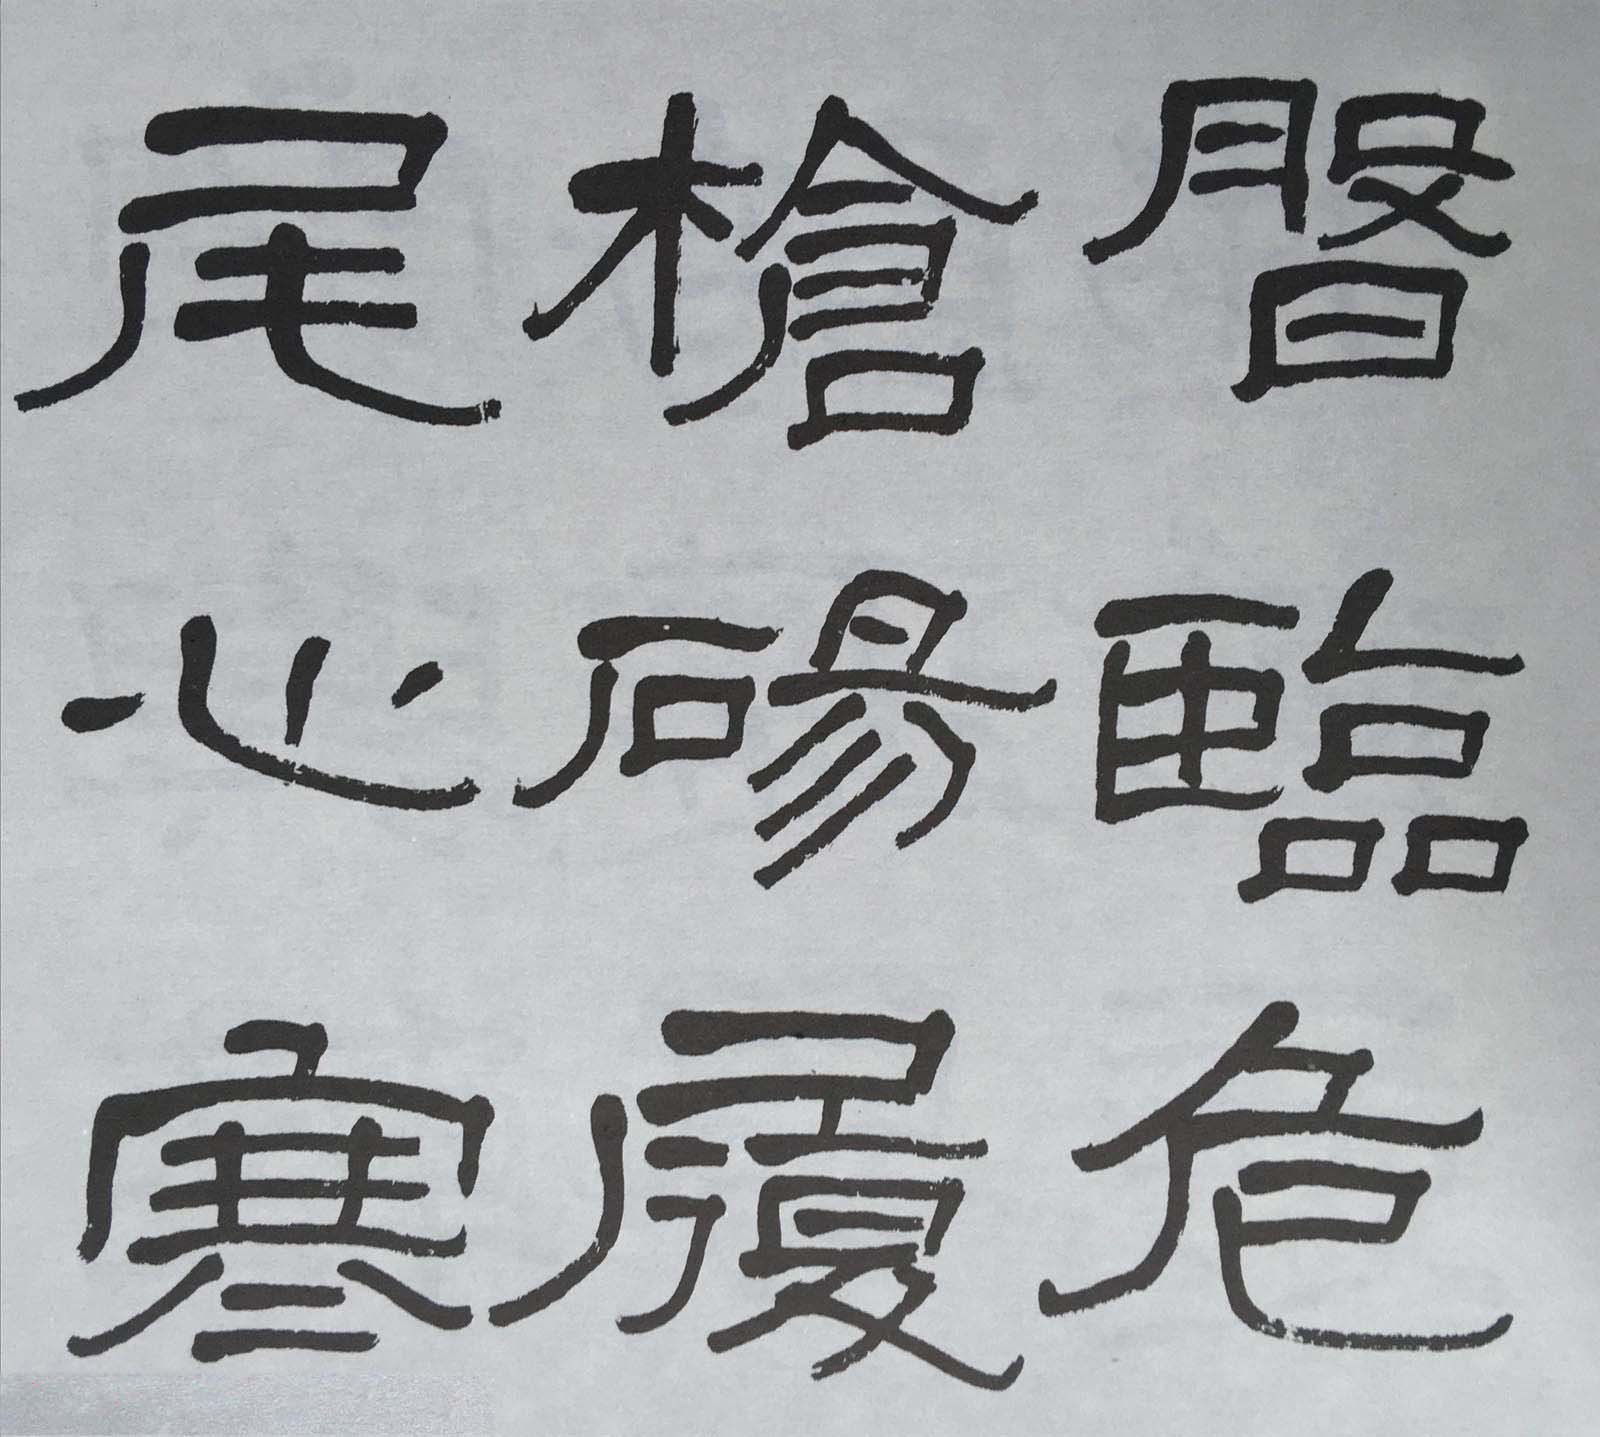 磐臨危
槍碭履
尾心寒